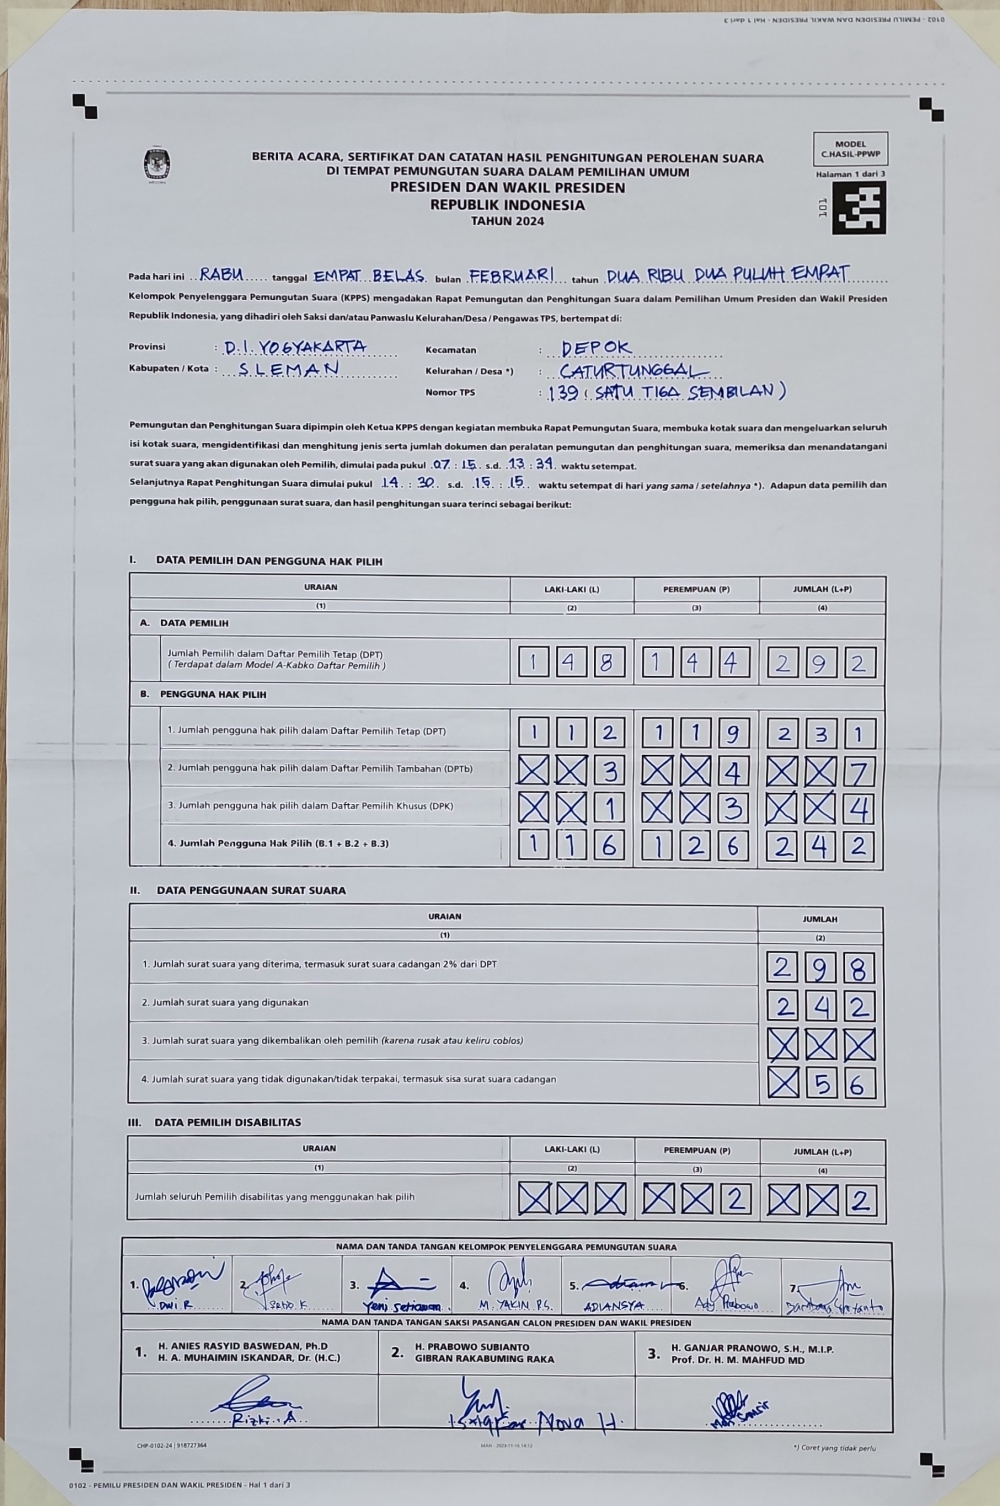 0102 - PEMILU PRESIDEN DAN WAKIL PRESIDEN - Hal 1 dari 3
MODEL
C.HASIL-PPWP
Halaman 1 dari 3
101
BERITA ACARA, SERTIFIKAT DAN CATATAN HASIL PENGHITUNGAN PEROLEHAN SUARA
DI TEMPAT PEMUNGUTAN SUARA DALAM PEMILIHAN UMUM
PRESIDEN DAN WAKIL PRESIDEN
REPUBLIK INDONESIA
TAHUN 2024
Pada hari ini RABU tanggal EMPAT BELAS bulan FEBRUARI tahun DUA RIBU DUA PULUH EMPAT
Kelompok Penyelenggara Pemungutan Suara (KPPS) mengadakan Rapat Pemungutan dan Penghitungan Suara dalam Pemilihan Umum Presiden dan Wakil Presiden
Republik Indonesia, yang dihadiri oleh Saksi dan/atau Panwaslu Kelurahan/Desa / Pengawas TPS, bertempat di:
Provinsi : D.I. YOGYAKARTA Kecamatan : DEPOK
Kabupaten / Kota : SLEMAN Kelurahan / Desa *) : CATURTUNGGAL
Nomor TPS : 139 ( SATU TIGA SEMBILAN )
Pemungutan dan Penghitungan Suara dipimpin oleh Ketua KPPS dengan kegiatan membuka Rapat Pemungutan Suara, membuka kotak suara dan mengeluarkan seluruh
isi kotak suara, mengidentifikasi dan menghitung jenis serta jumlah dokumen dan peralatan pemungutan dan penghitungan suara, memeriksa dan menandatangani
surat suara yang akan digunakan oleh Pemilih, dimulai pada pukul 07 : 15 s.d. 13 : 34 waktu setempat.
Selanjutnya Rapat Penghitungan Suara dimulai pukul 14 : 30 s.d. 15 : 15 waktu setempat di hari yang sama / setelahnya *). Adapun data pemilih dan
pengguna hak pilih, penggunaan surat suara, dan hasil penghitungan suara terinci sebagai berikut:
I. DATA PEMILIH DAN PENGGUNA HAK PILIH
URAIAN LAKI-LAKI (L) PEREMPUAN (P) JUMLAH (L+P)
(1) (2) (3) (4)
A. DATA PEMILIH
Jumlah Pemilih dalam Daftar Pemilih Tetap (DPT)
( Terdapat dalam Model A-Kabko Daftar Pemilih ) 1 4 8 1 4 4 2 9 2
B. PENGGUNA HAK PILIH
1. Jumlah pengguna hak pilih dalam Daftar Pemilih Tetap (DPT) 1 1 2 1 1 9 2 3 1
2. Jumlah pengguna hak pilih dalam Daftar Pemilih Tambahan (DPTb) X X 3 X X 4 X X 7
3. Jumlah pengguna hak pilih dalam Daftar Pemilih Khusus (DPK) X X 1 X X 3 X X 4
4. Jumlah Pengguna Hak Pilih (B.1 + B.2 + B.3) 1 1 6 1 2 6 2 4 2
II. DATA PENGGUNAAN SURAT SUARA
URAIAN JUMLAH
(1) (2)
1. Jumlah surat suara yang diterima, termasuk surat suara cadangan 2% dari DPT 2 9 8
2. Jumlah surat suara yang digunakan 2 4 2
3. Jumlah surat suara yang dikembalikan oleh pemilih (karena rusak atau keliru coblos) X X X
4. Jumlah surat suara yang tidak digunakan/tidak terpakai, termasuk sisa surat suara cadangan X 5 6
III. DATA PEMILIH DISABILITAS
URAIAN LAKI-LAKI (L) PEREMPUAN (P) JUMLAH (L+P)
(1) (2) (3) (4)
Jumlah seluruh Pemilih disabilitas yang menggunakan hak pilih X X X X X 2 X X 2
NAMA DAN TANDA TANGAN KELOMPOK PENYELENGGARA PEMUNGUTAN SUARA
1. 2. 3. 4. 5. 6. 7.
DWI R Yeni Setiawan M. YAKIN P.S. ADIANSYA Ady Prabowo
NAMA DAN TANDA TANGAN SAKSI PASANGAN CALON PRESIDEN DAN WAKIL PRESIDEN
1. H. ANIES RASYID BASWEDAN, Ph.D
H. A. MUHAIMIN ISKANDAR, Dr. (H.C.)
2. H. PRABOWO SUBIANTO
GIBRAN RAKABUMING RAKA
3. H. GANJAR PRANOWO, S.H., M.I.P.
Prof. Dr. H. M. MAHFUD MD
Rizki. A Nova H.
CHP-0102-24 | 918727364
*) Coret yang tidak perlu
0102 - PEMILU PRESIDEN DAN WAKIL PRESIDEN - Hal 1 dari 3